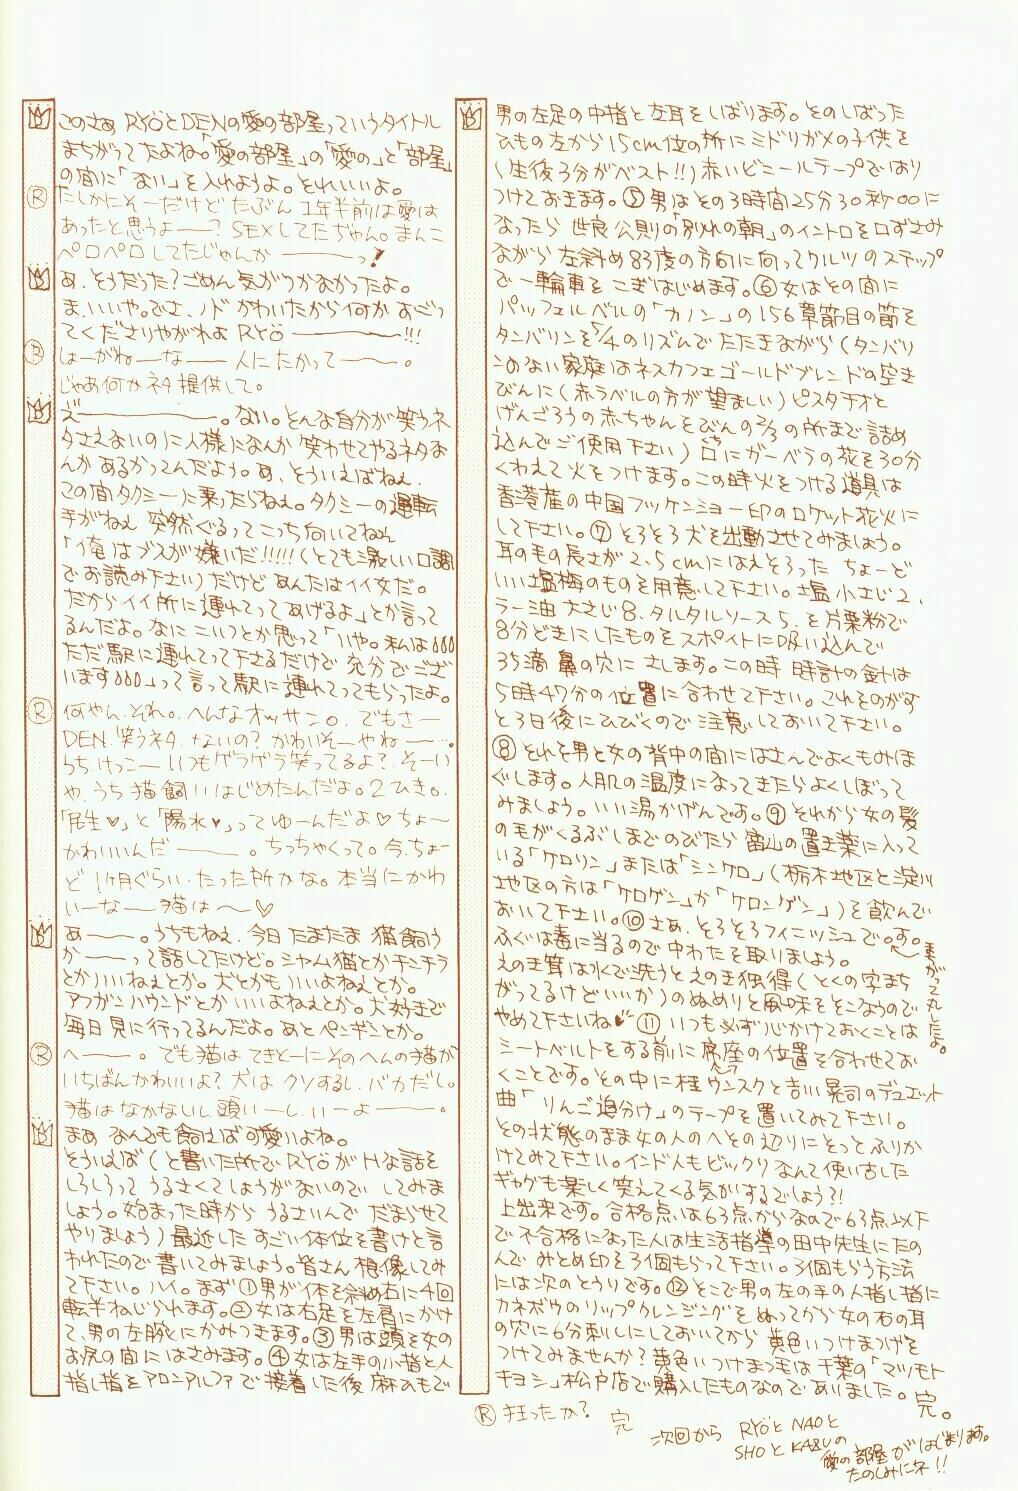 このさぁ RYÖとDENの愛の部屋っていうタイトル
まちがってたよね。「愛の部屋」の「愛の」と「部屋」
の間に「ない」を入れようよ。それいいよ。
Ⓡ たしかにそーだけど、たぶん 1年半前は愛は
あったと思うよ――? SEXしてたぢゃん。まんこ
ペロペロしてたじゃんか―――っ!
あ、そうだった?ごめん気がつかなかったよ。
ま、いいや。でさ、ノドかわいたから何かおごっ
てくださりやがれよ RYÖ ―――――!!!
Ⓡ しょーがねーなー―― 人にたかって――。
じゃあ何かネタ提供して。
え―――――――。ない。そんな自分が笑うネ
タさえないのに人様になんか笑わせてやるネタな
んかあるかってんだよう。あ、そういえばねえ、
この間タクシーに乗ったらねぇ。タクシーの運転
手がねぇ 突然ぐるってこっち向いてねぇ
「俺はブスが嫌いだ!!!!!(とても激しい口調
でお読み下さい)だけどあんたはイイ女だ。
だからイイ所に連れてってあげるよ」とか言って
るんだよ。なにこいつとか思って「いや。私は
ただ駅に連れてって下さるだけで充分でござ
います」って言って駅に連れてってもらったよ。
Ⓡ 何やん、それ。へんなオッサン。でもさー
DEN、笑うネタ、ないの?かわいそーやねー――…。
うち、けっこーいつもゲラゲラ笑ってるよ?そーい
や、うち猫飼いはじめたんだよ。2ひき。
「民生♥」と「陽水♥」ってゆーんだよ♡ちょ〜
かわいいんだ―――。ちっちゃくって。今、ちょー
ど1ヶ月ぐらいたった所かな。本当にかわ
いーなー―猫は〜♡
あ――。うちもねえ、今日たまたま猫飼う
か――って話してたけど。シャム猫とかチンチラ
とかいいねえとか。犬とかもいいよねえとか。
アフガンハウンドとかいいよねえとか。犬好きで
毎日見に行ってるんだよ。あとペンギンとか。
Ⓡ へ――。でも猫はてきとーにそのへんの猫が
いちばんかわいいよ?犬はクソするし、バカだし。
猫はなかないし、頭いーし、いーよ―――。
まあ なんでも飼えば可愛いよね。
そういえば(と書いた所でRYÖがHな話を
しろしろってうるさくてしょうがないので してみま
しょう。始まった時からうるさいんで だまらせて
やりましょう)最近したすごい体位を書けと言
われたので書いてみましょう。皆さん想像してみ
て下さい。ハイ。まず①男が体を斜め右に4回
転半ねじられます。②女は右足を左肩にかけ
て、男の左腕にかみつきます。③男は頭を女の
お尻の間にはさみます。④女は左手の小指と人
指し指をアロンアルファで接着した後 麻ひもで
男の左足の中指と左耳をしばります。そのしばった
ひもの左から15cm位の所にミドリガメの子供を
(生後3分がベスト!!)赤いビニールテープではり
つけておきます。⑤男はその3時間25分30秒00に
なったら 世良公則の「別れの朝」のイントロを口ずさみ
ながら左斜め83度の方向に向ってワルツのステップ
で一輪車をこぎはじめます。⑥女はその間に
パッフェルベルの「カノン」の156章節目の節を
タンバリンを5/4のリズムでたたきながら(タンバリ
ンのない家庭はネスカフェゴールドブレンドの空き
びんに(赤ラベルの方が望ましい)ピスタチオと
げんごろうの赤ちゃんをびんの2/3の所まで詰め
込んでご使用下さい)口にガーベラの花を30分
くわえて火をつけます。この時火をつける道具は
香港産の中国フッケンショー印のロケット花火に
して下さい。⑦そろそろ犬を出動させてみましょう。
耳の毛の長さが2.5cmにはえそろった ちょーど
いい塩梅のものを用意して下さい。塩小さじ2、
ラー油大さじ8、タルタルソース5、を片栗粉で
8分どきにしたものをスポイトに吸い込んで
35滴鼻の穴にさします。この時 時計の針は
5時47分の位置に合わせて下さい。これをのがす
と3日後にひびくので注意しておいて下さい。
⑧それを男と女の背中の間にはさんでよくもみほ
ぐします。人肌の温度になってきたらよくしぼって
みましょう。いい湯かげんです。⑨それから女の髪
の毛がくるぶしまでのびたら富山の置き薬に入って
いる「ケロリン」または「シンケロ」(栃木地区と淀川
地区の方は「ケロゲン」か「ケロンゲン」)を飲んで
おいて下さい。⑩さぁ、そろそろフィニッシュで。す。
まちがって丸したよ。
ふぐは毒に当るので中わたを取りましょう。
えのき茸は水で洗うとえのき独得(とくの字まち
がってるけどいいか)のぬめりと風味をそこなうので
やめて下さいね♥ ⑪いつも必ず心がけておくことは
シートベルトをする前に座席の位置を合わせてお
くことです。その中に桂ウンスクと吉川晃司のデュエット
曲「りんご追分け」のテープを置いてみて下さい。
その状態のまま女の人のへその辺りにそっとふりか
けてみて下さい。インド人もビックリなんて使い古した
ギャグも楽しく笑えてくる気がするでしょう?!
上出来です。合格点は63点からなので63点以下
で不合格になった人は生活指導の田中先生にたの
んでみとめ印を3個もらって下さい。3個もらう方法
には次のとうりです。⑫そこで男の左の手の人指し指に
カネボウのリップクレンジングをぬってから女の右の耳
の穴に6分刺しにしておいてから 黄色いつけまつげを
つけてみませんか?黄色いつけまつ毛は千葉の「マツモト
キヨシ」松戸店で購入したものなのでありました。完。
Ⓡ 狂ったか? 完
次回から RYÖとNAOと
SHOとKAZUの
愛の部屋がはじまります。
たのしみにネ!!